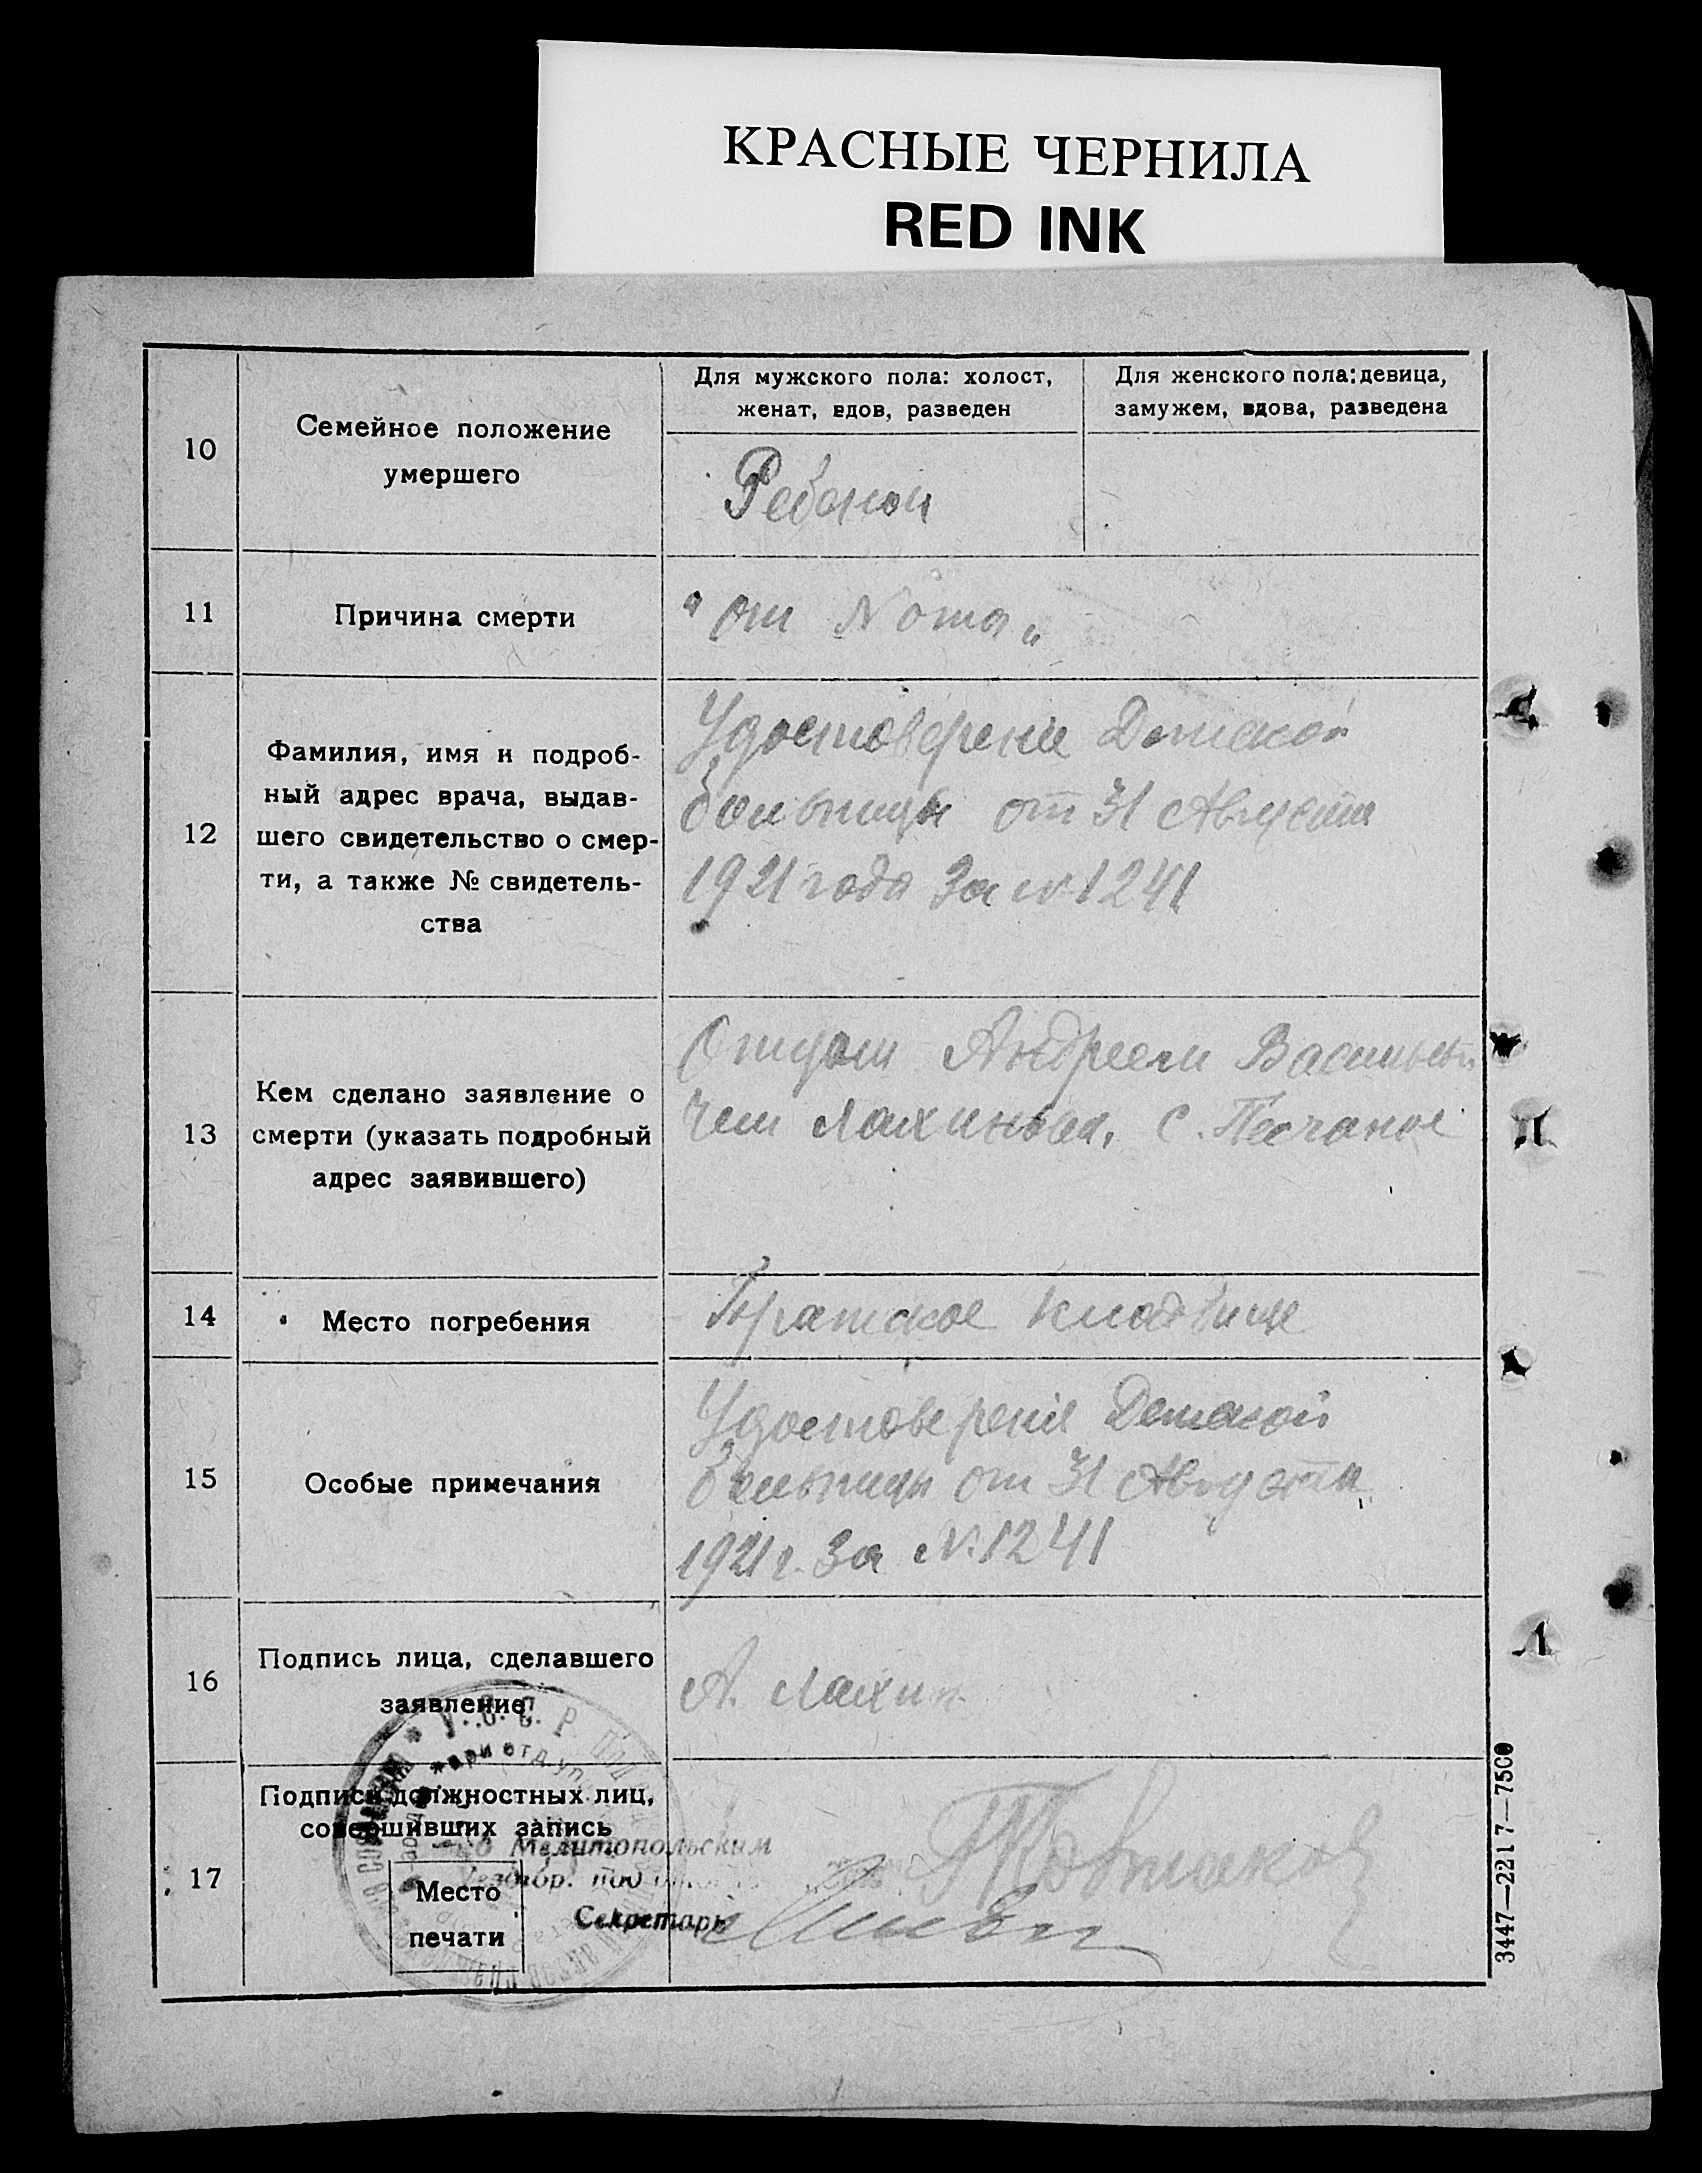 КРАСНЫЕ ЧЕРНИЛА
RED INK
10
Семейное положение
умершего
Для мужского пола: холост,
женат, вдов, разведен
Для женского пола: девица,
замужем, вдова, разведена
Ребенок
11
Причина смерти
"от Noma"
12
Фамилия, имя и подроб-
ный адрес врача, выдав-
шего свидетельство о смер-
ти, а также № свидетель-
ства
Удостоверение Детской
больницы от 31 Августа
1921 года За № 1241
13
Кем сделано заявление о
смерти (указать подробный
адрес заявившего)
Отцом Андреем Василье
чем с. Песчаное
14
Место погребения
Братское кладбище
15
Особые примечания
Удостоверения Детской
больницы от 31 Августа
1921 г. За № 1241
16
Подпись лица, сделавшего
заявление
А. Лахин
17
Подписи должностных лиц,
совершивших запись
Мелитопольским
Место
печати
Секретарь
3447—2217—7500